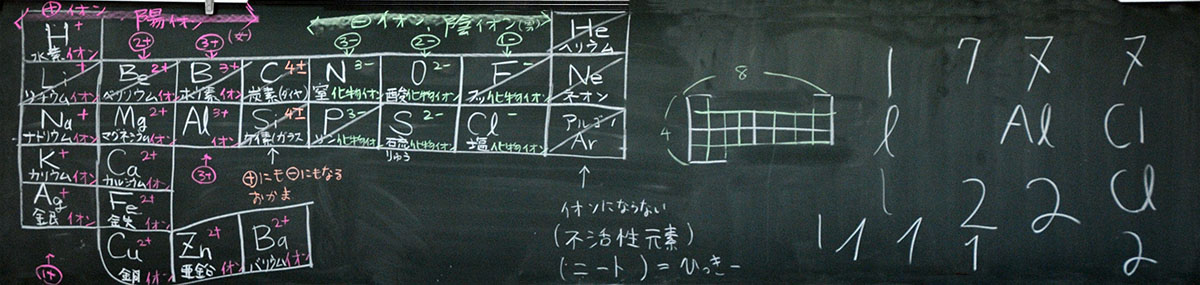 ⊕イオン 陽イオン ⊖イオン, 陰イオン
2+ 3+ 3- 2- 1-
H+ He
水素イオン ヘリウム
Li+ Be2+ B3+ C4± N3- O2- F- Ne
リチウムイオン ベリリウムイオン ホウ素イオン 炭素(ダイヤ 窒化物イオン 酸化物イオン フッ化物イオン ネオン
Na+ Mg2+ Al3+ Si4± P3- S2- Cl- アルゴン
ナトリウムイオン マグネシウムイオン ケイ素(ガラス リン化物イオン 硫化物イオン 塩化物イオン Ar
りゅう
K+ Ca2+
カリウムイオン カルシウムイオン
3+
⊕にも⊖にもなる
おかま
Ag+ Fe2+
銀イオン 鉄イオン
Cu2+ Zn2+ Ba2+
銅イオン 亜鉛イオン バリウムイオン
1+
イオンにならない
(不活性元素)
(ニート)=ひっきー
8
4
1 7 7 7
l Al Cl
l 2 2 Cl
1 1 1 1 2